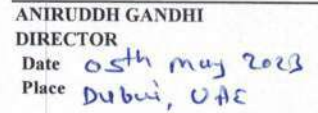 ANIRUDDH GANDHI
DIRECTOR
Date 05th may 2023
Place Dubai, UAE